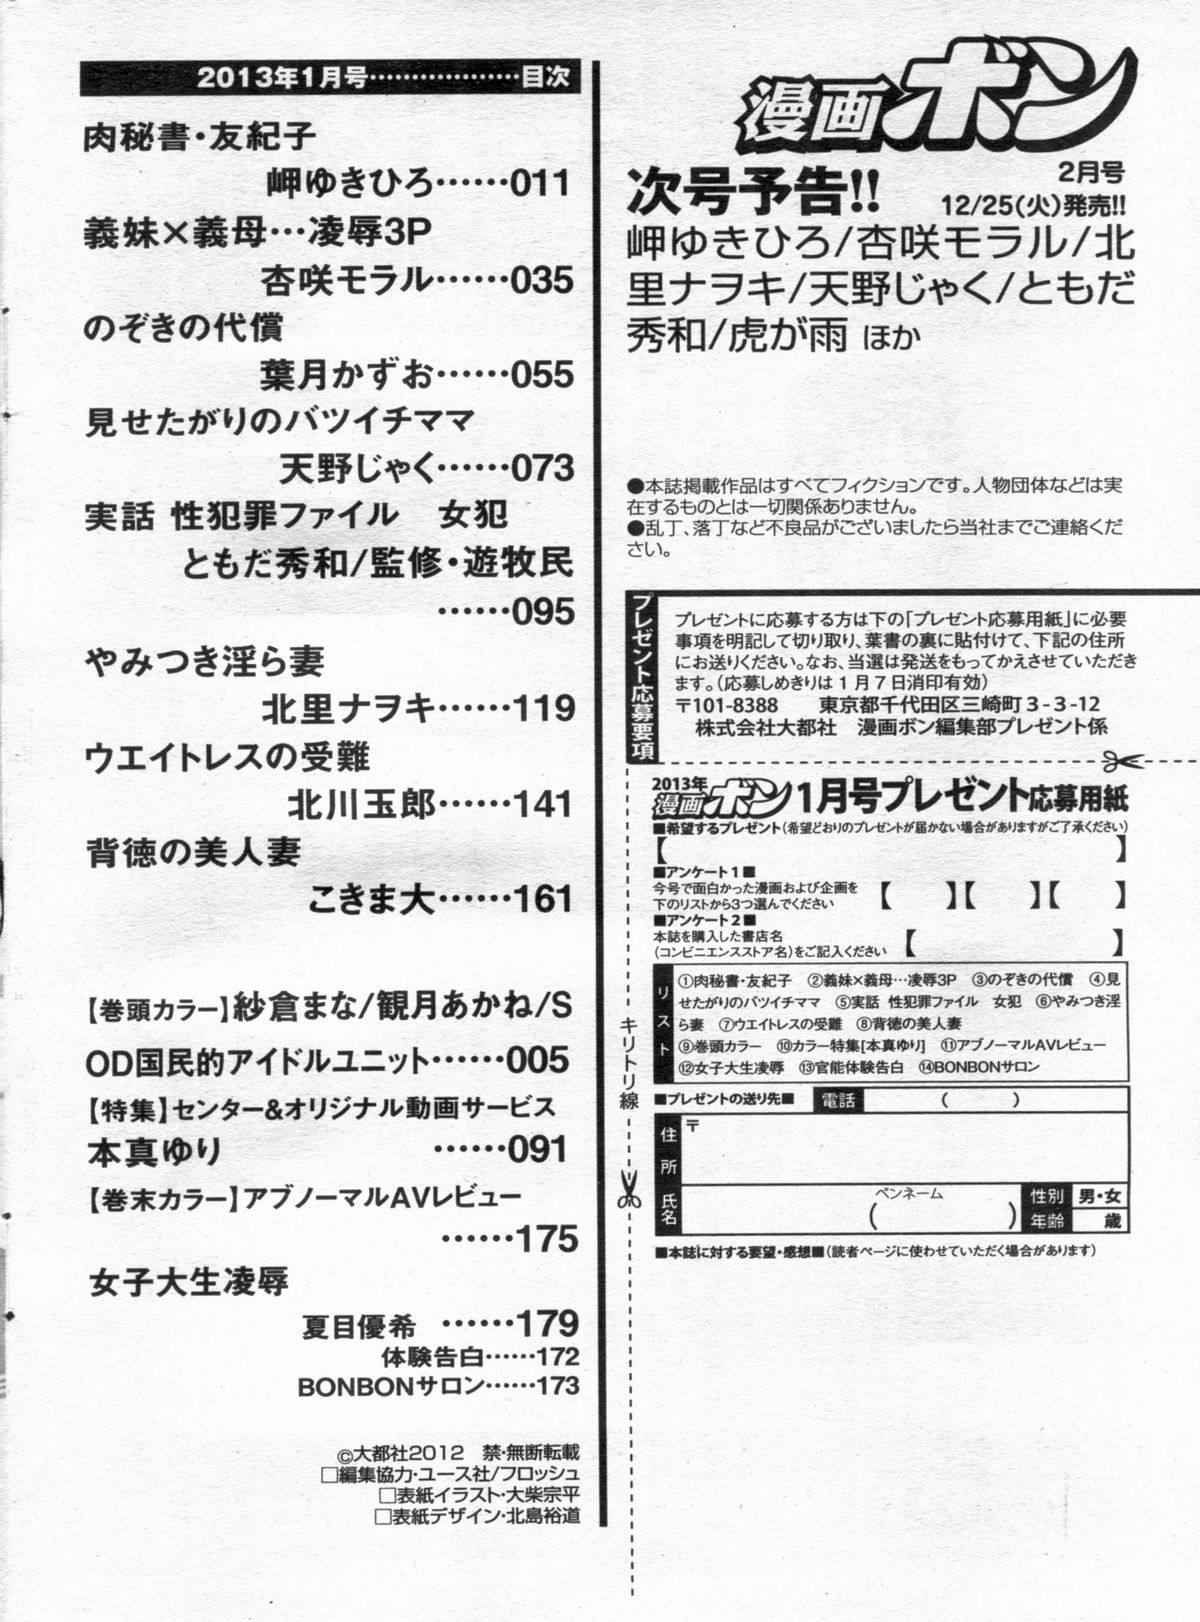 2013年1月号………………目次
肉秘書・友紀子
岬ゆきひろ……011
義妹×義母…凌辱3P
杏咲モラル……035
のぞきの代償
葉月かずお……055
見せたがりのバツイチママ
天野じゃく……073
実話 性犯罪ファイル 女犯
ともだ秀和/監修・遊牧民
……095
やみつき淫ら妻
北里ナヲキ……119
ウエイトレスの受難
北川玉郎……141
背徳の美人妻
こきま大……161
【巻頭カラー】紗倉まな/観月あかね/S
OD国民的アイドルユニット……005
【特集】センター&オリジナル動画サービス
本真ゆり ……091
【巻末カラー】アブノーマルAVレビュー
……175
女子大生凌辱
夏目優希 ……179
体験告白……172
BONBONサロン……173
©大都社2012 禁・無断転載
□編集協力・ユース社/フロッシュ
□表紙イラスト・大柴宗平
□表紙デザイン・北島裕道
漫画ボン
2月号
次号予告!! 12/25(火)発売!!
岬ゆきひろ/杏咲モラル/北
里ナヲキ/天野じゃく/ともだ
秀和/虎が雨 ほか
●本誌掲載作品はすべてフィクションです。人物団体などは実
在するものとは一切関係ありません。
●乱丁、落丁など不良品がございましたら当社までご連絡くだ
さい。
プレゼント応募要項
プレゼントに応募する方は下の「プレゼント応募用紙」に必要
事項を明記して切り取り、葉書の裏に貼付けて、下記の住所
にお送りください。なお、当選は発送をもってかえさせていただき
ます。(応募しめきりは1月7日消印有効)
〒101-8388 東京都千代田区三崎町3-3-12
株式会社大都社 漫画ボン編集部プレゼント係
2013年
漫画ボン 1月号プレゼント応募用紙
■希望するプレゼント(希望どおりのプレゼントが届かない場合がありますがご了承ください)
【 】
■アンケート1■
今号で面白かった漫画および企画を
下のリストから3つ選んでください 【 】【 】【 】
■アンケート2■
本誌を購入した書店名
(コンビニエンスストア名)をご記入ください 【 】
リスト
①肉秘書・友紀子 ②義妹×義母…凌辱3P ③のぞきの代償 ④見
せたがりのバツイチママ ⑤実話 性犯罪ファイル 女犯 ⑥やみつき淫
ら妻 ⑦ウエイトレスの受難 ⑧背徳の美人妻
⑨巻頭カラー ⑩カラー特集[本真ゆり] ⑪アブノーマルAVレビュー
⑫女子大生凌辱 ⑬官能体験告白 ⑭BONBONサロン
キリトリ線
■プレゼントの送り先■ 電話 ( )
住所 〒
氏名 ペンネーム ( )
性別 男・女
年齢 歳
■本誌に対する要望・感想■(読者ページに使わせていただく場合があります)